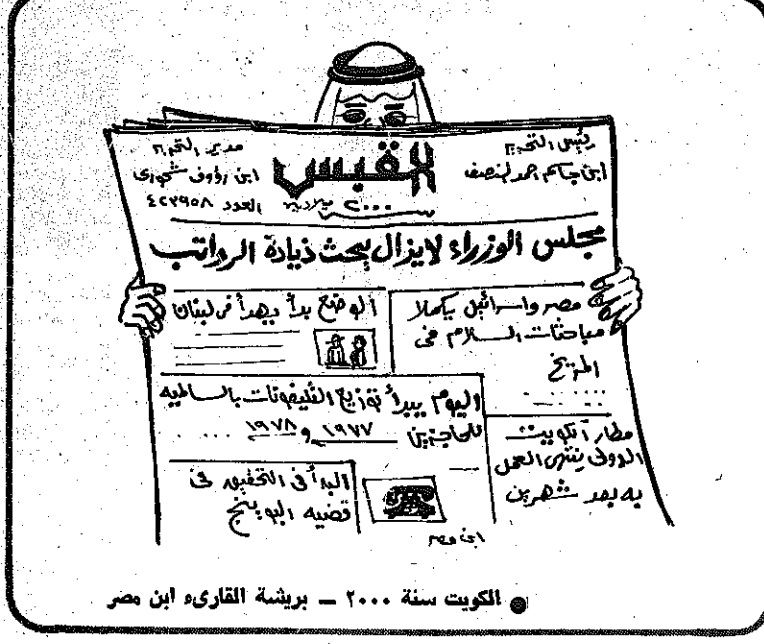 رئيس التحرير
ابن جاسم احمد النصف
القبس
٢٠٠٠ ميلادية
مدير التحرير
ابن رؤوف شحوري
العدد ٤٢٣٩٥٨
مجلس الوزراء لايزال يبحث ذيادة الرواتب
مصر واسرائيل يكملا
مباحثات السلام في
المريخ
الوضع بدأ يهدأ في لبنان
اليوم يبدأ توزيع التليفونات بالسالميه
للحاجزين ١٩٧٧ و ١٩٧٨
مطار الكويت
الدولي ينتهى العمل
به بعد شهرين
البدأ في التحقيق في
قضيه البوينج
ابن مصر
الكويت سنة ٢٠٠٠ ــ بريشة القارىء ابن مصر